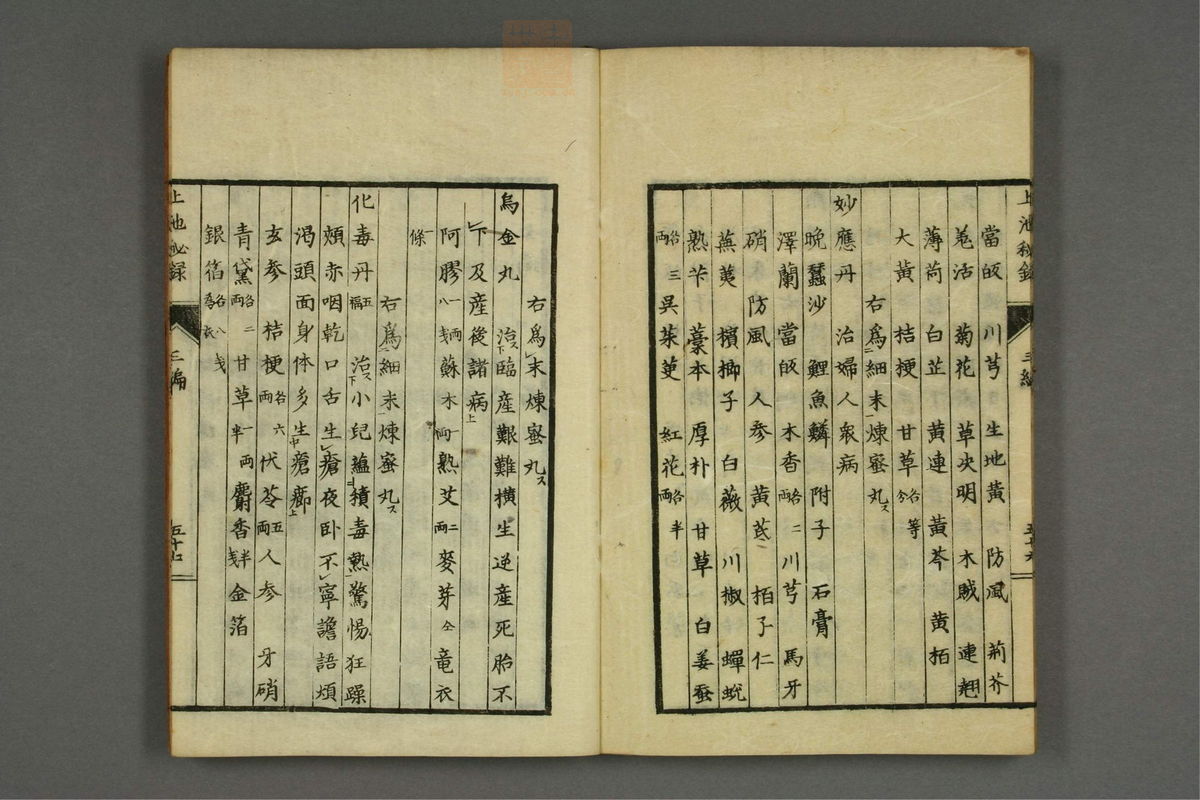 上池秘録　三編　五十六
當皈　川芎　生地黃　防風　荊芥
羗活　菊花　草決明　木賊　連翹
薄荷　白芷　黃連　黃芩　黄栢
大黃　桔梗　甘草各等分
右爲細末煉蜜丸ス
妙應丹　治婦人衆病
晩蠶沙　鯉魚鱗　附子　石膏
澤蘭　當皈　木香各二両　川芎　馬牙
硝　防風　人参　黃芪　栢子仁
蕪荑　檳榔子　白薇　川椒　蟬蛻
熟苄　藁本　厚朴　甘草　白姜蚕
各三両　呉茱萸　紅花各半両
右爲末煉蜜丸ス
烏金丸　治臨産艱難横生逆産死胎不
下及産後諸病
阿膠一両八戔　蘇木一両　熟艾二両　麥芽仝　竜衣
一條
右爲細末煉蜜丸ス
化毒丹五福　治小兒蘊積毒熱驚惕狂躁
頰赤咽乾口舌生瘡夜卧不寧譫語煩
渇頭面身体多生瘡癤
玄参　桔梗各六両　伏苓五両　人参　牙硝
青黛各二両　甘草一両半　麝香半戔　金箔
銀箔各八戔爲衣
上池秘録　三編　五十七